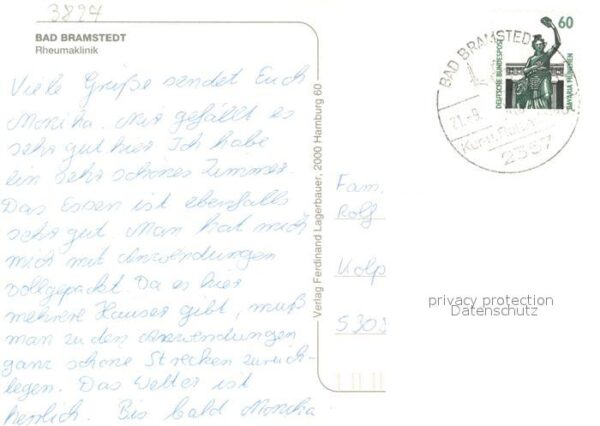 3824
BAD BRAMSTEDT
Rheumaklinik
Viele Grüße sendet Euch
Monika. Mir gefällt es
sehr gut hier Ich habe
ein sehr schönes Zimmer.
Das Essen ist ebenfalls
sehr gut. Man hat mich
mich mit Anwendungen
vollgepackt. Da es hier
mehrere Häuser gibt, muß
man zu den Anwendungen
ganz schöne Strecken zurück-
legen. Das Wetter ist
herrlich. Bis bald Monika
Verlag Ferdinand Lagerbauer, 2000 Hamburg 60
60
DEUTSCHE BUNDESPOST
BAVARIA MÜNCHEN
BAD BRAMSTEDT
21.-9.
2357
Fam.
Rolf
Kolp
5303
privacy protection
Datenschutz